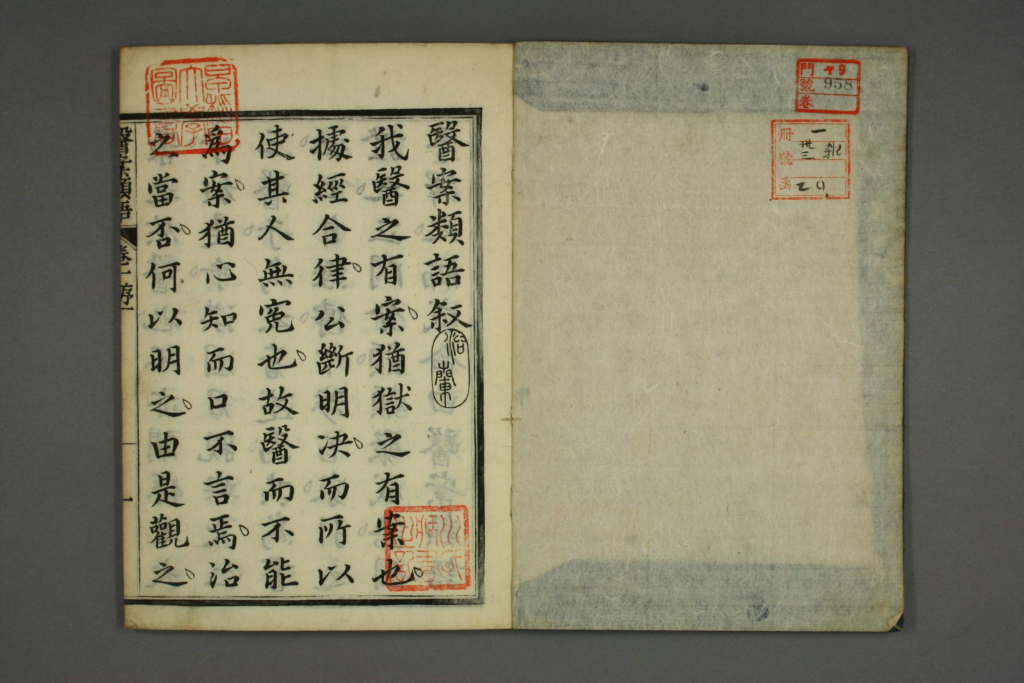 門 十9
號 958
卷
冊 一
號 卅三
函
醫案類語叙
浴蘭
我醫之有案猶獄之有案也
據經合律公斷明决而所以
使其人無寃也故醫而不能
爲案猶心知而口不言焉治
之當否何以明之由是觀之
醫案類語 卷十 序 一
一